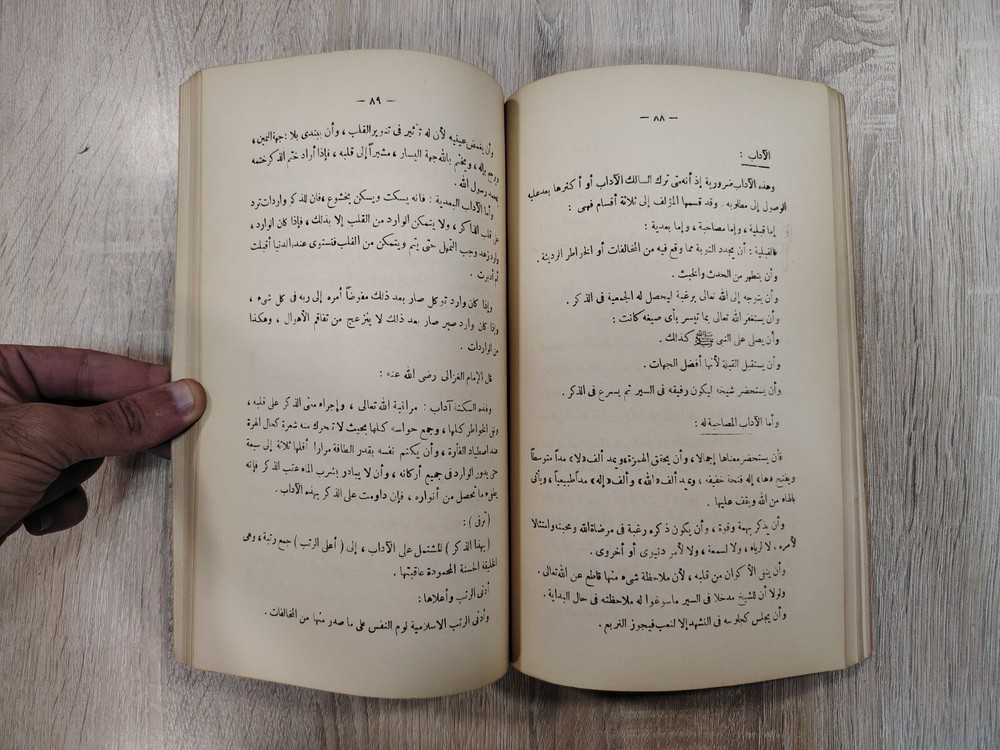 — ٨٨ —
الآداب :
وهذه الآداب ضرورية إذ أنه متى ترك السالك الآداب أو أكثرها بعد عليه
الوصول إلى مطلوبه . وقد قسمها المؤلف إلى ثلاثة أقسام فهى :
إما قبلية ، وإما مصاحبة ، وإما بعدية :
فالقبلية : أن يجدد التوبة مما وقع فيه من المخالفات أو الخواطر الرديئة .
وأن يتطهر من الحدث والخبث .
وأن يتوجه إلى الله تعالى برغبة ليحصل له الجمعية فى الذكر .
وأن يستغفر الله تعالى بما تيسر بأى صيغه كانت :
وأن يصلى على النبى ﷺ كذلك .
وأن يستقبل القبلة لأنها أفضل الجهات .
وأن يستحضر شيخه ليكون رفيقه فى السير ثم يسرع فى الذكر .
وأما الآداب المصاحبة له :
فأن يستحضر معناها إجمالا ، وأن يحقق الهمزة ويمد ألف «لا» مداً متوسطاً
ويفتح «ها» إله فتحة خفيفه ، ويمد ألف «الله» وألف «إله» مداً طبيعياً ، ويأتى
بالهاء من الله ويقف عليها .
وأن يذكر بهمة وقوة ، وأن يكون ذكره رغبة فى مرضاة الله ومحبته وامتثالا
لأمره ، لا لرياء ، ولا لسمعة ، ولا لأمر دنيوى أو أخروى .
وأن ينفى الأكوان من قلبه ، لأن ملاحظة شىء منها قاطع عن الله تعالى .
ولولا أن للشيخ مدخلا فى السير ما سوغوا له ملاحظته فى حال البداية .
وأن يجلس كجلوسه فى التشهد إلا لتعب فيجوز التربع .
— ٨٩ —
وأن يغمض عينيه لأن له تأثير فى تنوير القلب ، وأن يبتدى بلا : جهة اليمين ،
ويرجع بإله ، ويختم بالله جهة اليسار ، مشيراً إلى قلبه ، فإذا أراد ختم الذكر ختمه
بمحمد رسول الله .
وأما الآداب البعدية : فانه يسكت ويسكن بخشوع ، فان للذكر واردات ترد
على قلب الذاكر ، ولا يتمكن الوارد من القلب إلا بذلك ، فاذا كان الوارد ،
وارد زهد وجب التمهل حتى يتم ويتمكن من القلب فتستوى عنده الدنيا أقبلت
أم أدبرت .
وإذا كان وارد توكل صار بعد ذلك مفوضاً أمره إلى ربه فى كل شىء ،
وإذا كان وارد صبر صار بعد ذلك لا ينزعج من تفاقم الأهوال ، وهكذا
من الواردات .
قال الإمام الغزالى رضى الله عنه :
ولهذه السكتة آداب : مراقبة الله تعالى ، وإجراء معنى الذكر على قلبه ،
ونفى الخواطر كلها ، وجمع حواسه كلها بحيث لا تتحرك منه شعرة كحال الهرة
عند اصطياد الفأرة ، وأن يكتم نفسه بقدر الطاقة مرارا أقلها ثلاثة إلى سبعة
حتى يدور الوارد فى جميع أركانه ، وأن لا يبادر بشرب الماء عقب الذكر فإنه
يطفىء ما تحصل من أنواره ، فإن داومت على الذكر بهذه الآداب .
( ترقى ) :
( بهذا الذكر ) المشتمل على الآداب ، إلى ( أعلى الرتب ) جمع رتبة ، وهى
الخليفه الحسنة المحمودة عاقبتها .
أدنى الرتب وأعلاها :
وأدنى الرتب الاسلامية لوم النفس على ما صدر منها من المخالفات .